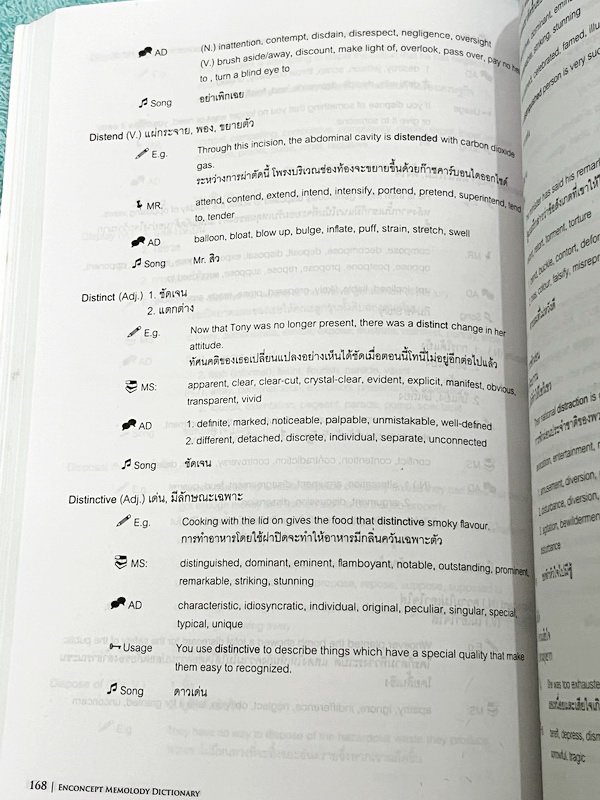 AD (N.) inattention, contempt, disdain, disrespect, negligence, oversight
(V.) brush aside/away, discount, make light of, overlook, pass over, pay no
to , turn a blind eye to
Song อย่าเพิกเฉย
Distend (V.) แผ่กระจาย, พอง, ขยายตัว
E.g. Through this incision, the abdominal cavity is distended with carbon dioxide
gas.
ระหว่างการผ่าตัดนี้ โพรงบริเวณช่องท้องจะขยายขึ้นด้วยก๊าซคาร์บอนไดออกไซด์
MR. attend, contend, extend, intend, intensify, portend, pretend, superintend, tend
to, tender
AD balloon, bloat, blow up, bulge, inflate, puff, strain, stretch, swell
Song Mr. สิว
Distinct (Adj.) 1. ชัดเจน
2. แตกต่าง
E.g. Now that Tony was no longer present, there was a distinct change in her
attitude.
ทัศนคติของเธอเปลี่ยนแปลงอย่างเห็นได้ชัดเมื่อตอนนี้โทนี่ไม่อยู่อีกต่อไปแล้ว
MS: apparent, clear, clear-cut, crystal-clear, evident, explicit, manifest, obvious,
transparent, vivid
AD 1. definite, marked, noticeable, palpable, unmistakable, well-defined
2. different, detached, discrete, individual, separate, unconnected
Song ชัดเจน
Distinctive (Adj.) เด่น, มีลักษณะเฉพาะ
E.g. Cooking with the lid on gives the food that distinctive smoky flavour.
การทำอาหารโดยใช้ฝาปิดจะทำให้อาหารมีกลิ่นควันเฉพาะตัว
MS: distinguished, dominant, eminent, flamboyant, notable, outstanding, prominent,
remarkable, striking, stunning
AD characteristic, idiosyncratic, individual, original, peculiar, singular, special,
typical, unique
Usage You use distinctive to describe things which have a special quality that make
them easy to recognized.
Song ดาวเด่น
168 | ENCONCEPT MEMOLODY DICTIONARY